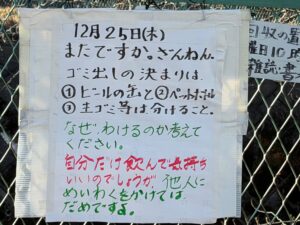 12月25日(木)
またですか。ざんねん。
ゴミ出しの決まりは、
①ビールの缶と②ペットボトル
③生ゴミ等は分けること。
なぜわけるのか考えて
ください。
自分だけ飲んで気持ち
いいのでしょうが、他人に
めいわくをかけては
だめですよ。
回収の
曜日10時
雑誌・書